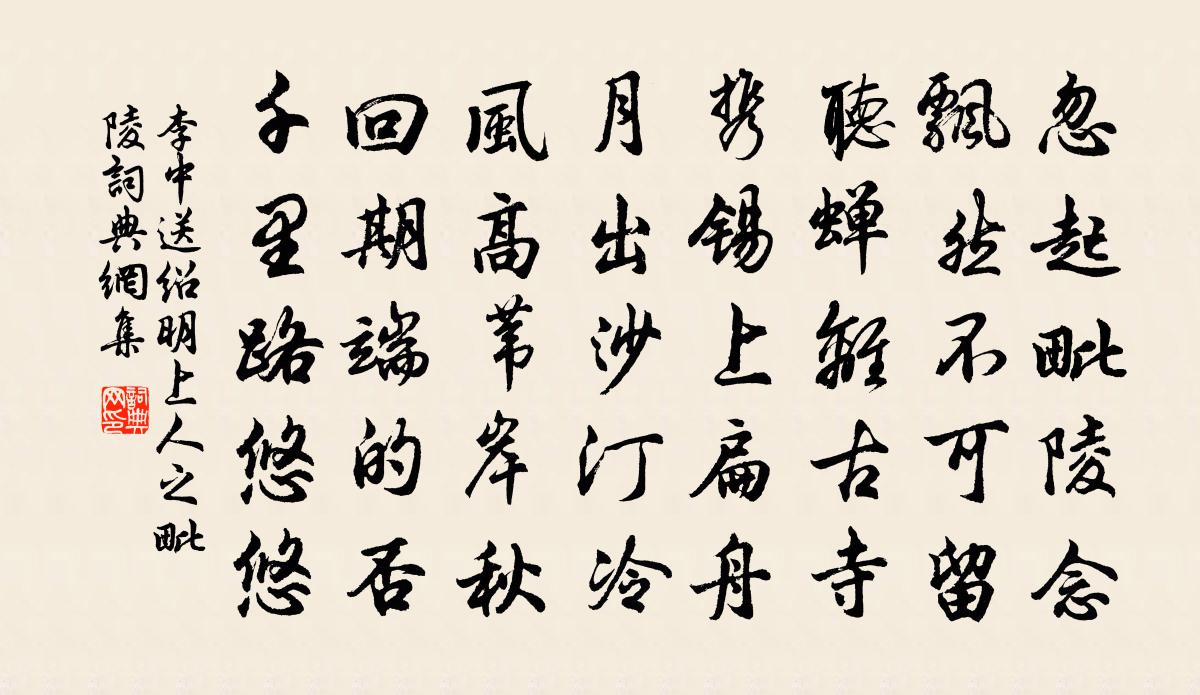 忽起毗陵念
飄然不可留
聽蟬離古寺
携錫上扁舟
月出沙汀冷
風高葦岸秋
回期端的否
千里路悠悠
李中送紹明上人之毗
陵詞典網集
詞典网印